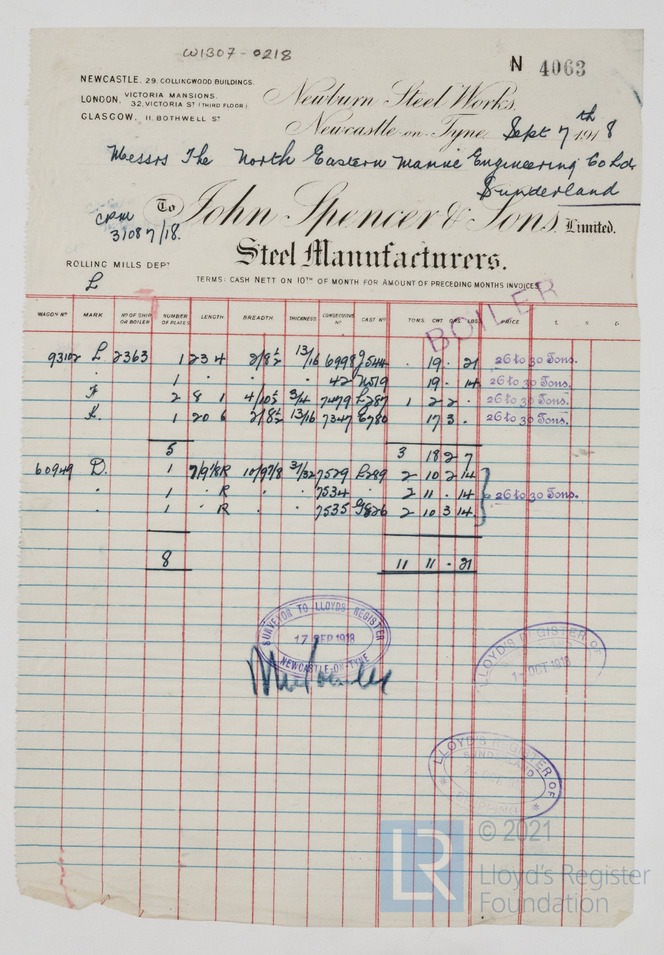 W1307-0218
N 4063
NEWCASTLE, 29, COLLINGWOOD BUILDINGS.
LONDON, VICTORIA MANSIONS,
32, VICTORIA ST (THIRD FLOOR).
GLASGOW, 11, BOTHWELL ST
Newburn Steel Works,
Newcastle-on-Tyne, Sept 7th 1918
Messrs The North Eastern Marine Engineering Co Ld
Sunderland
To John Spencer & Sons, Limited.
CPM
31087/18.
Steel Manufacturers.
ROLLING MILLS DEPT
TERMS: CASH NETT ON 10TH OF MONTH FOR AMOUNT OF PRECEDING MONTHS INVOICES
L
BOILER
WAGON No MARK No OF SHIP OR BOILER NUMBER OF PLATES LENGTH BREADTH. THICKNESS CONSECUTIVE No CAST No TONS CWT QRS LBS PRICE £ S D
93102 L 2363 1 23 4 2/8½ 13/16 6998 J544 . 19 . 21 26 to 30 Tons.
. 1 . . . 42 19 . 14 26 to 30 Tons.
F 2 8 1 4/10½ 3/4 7479 L287 1 2 2 . 26 to 30 Tons.
K. 1 20 6 2/8½ 13/16 7347 E780 17 3 . 26 to 30 Tons.
5 3 18 2 7
60949 D. 1 7/9⅛R 10/9⅞ 7529 L289 2 10 2 14
. 1 . R 7534 2 11 . 14 26 to 30 Tons.
. 1 . R 7535 G826 2 10 3 14
8 11 11 . 21
SURVEYOR TO LLOYD'S REGISTER
17 SEP 1918
NEWCASTLE-ON-TYNE
LLOYD'S REGISTER OF
OCT 1918
LLOYD'S REGISTER OF
SUNDERLAND
SHIPPING
LR
© 2021
Lloyd's Register
Foundation